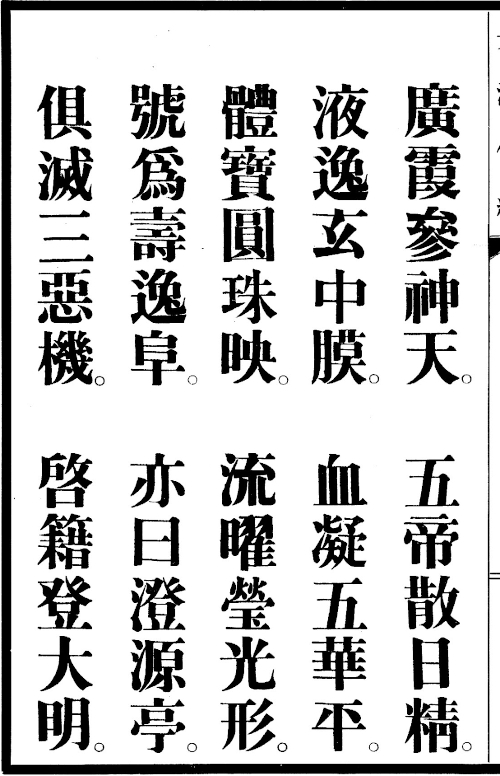 廣霞參神天。五帝散日精。
液逸玄中膜。血凝五華平。
體寶圓珠映。流曜瑩光形。
號爲壽逸阜。亦曰澄源亭。
俱滅三惡機。啓籍登大明。